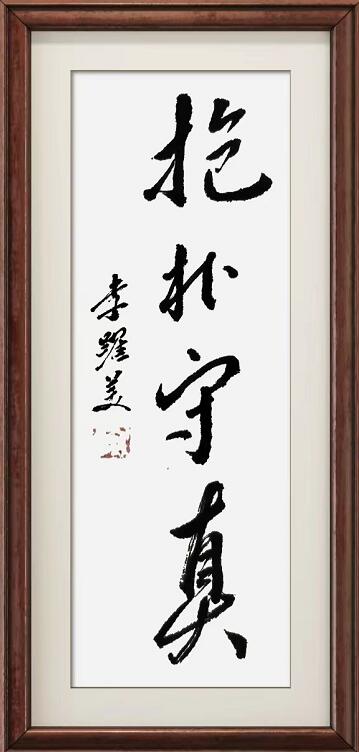 抱朴守真
李耀美